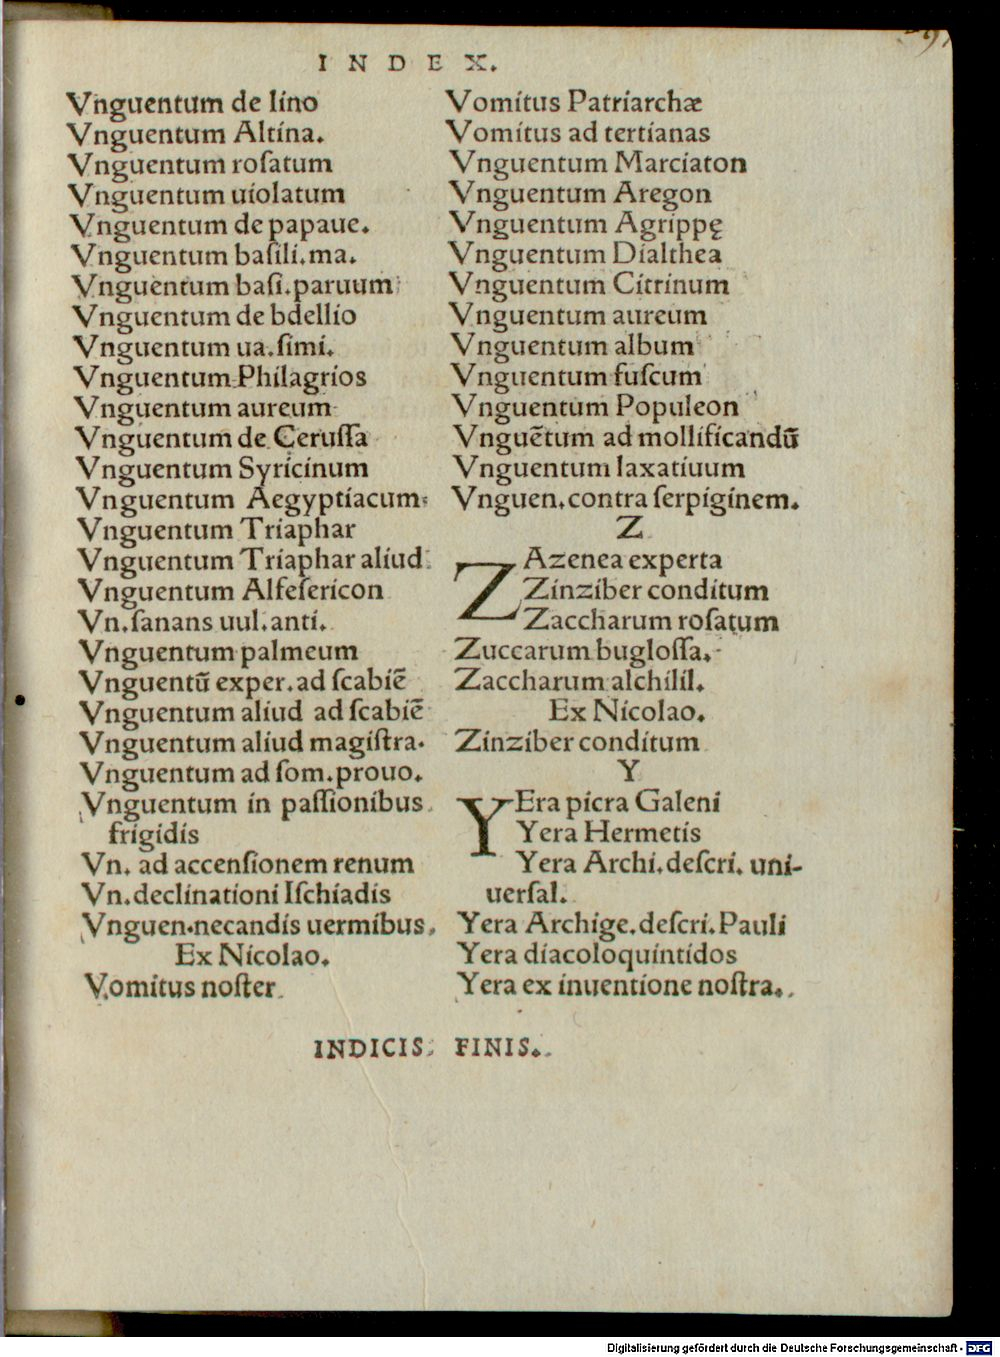 INDEX.
Vnguentum de lino
Vnguentum Altina.
Vnguentum roſatum
Vnguentum uiolatum
Vnguentum de papaue.
Vnguentum baſili. ma.
Vnguentum baſi. paruum
Vnguentum de bdellio
Vnguentum ua. ſimi.
Vnguentum Philagrios
Vnguentum aureum
Vnguentum de Ceruſſa
Vnguentum Syricinum
Vnguentum Aegyptiacum
Vnguentum Triaphar
Vnguentum Triaphar aliud
Vnguentum Alfeſericon
Vn. ſanans uul. anti.
Vnguentum palmeum
Vnguentū exper. ad ſcabiē
Vnguentum aliud ad ſcabiē
Vnguentum aliud magiſtra.
Vnguentum ad ſom. prouo.
Vnguentum in paſſionibus
frigidis
Vn. ad accenſionem renum
Vn. declinationi Iſchiadis
Vnguen. necandis uermibus.
Ex Nicolao.
Vomitus noſter
Vomitus Patriarchæ
Vomitus ad tertianas
Vnguentum Marciaton
Vnguentum Aregon
Vnguentum Agrippę
Vnguentum Dialthea
Vnguentum Citrinum
Vnguentum aureum
Vnguentum album
Vnguentum fuſcum
Vnguentum Populeon
Vnguētum ad mollificandū
Vnguentum laxatiuum
Vnguen. contra ſerpiginem.
Z
ZAzenea experta
Zinziber conditum
Zaccharum roſatum
Zuccarum bugloſſa.
Zaccharum alchilil.
Ex Nicolao.
Zinziber conditum
Y
YEra picra Galeni
Yera Hermetis
Yera Archi. deſcri. uni-
uerſal.
Yera Archige. deſcri. Pauli
Yera diacoloquintidos
Yera ex inuentione noſtra.
INDICIS FINIS.
Digitalisierung gefördert durch die Deutsche Forschungsgemeinschaft - DFG